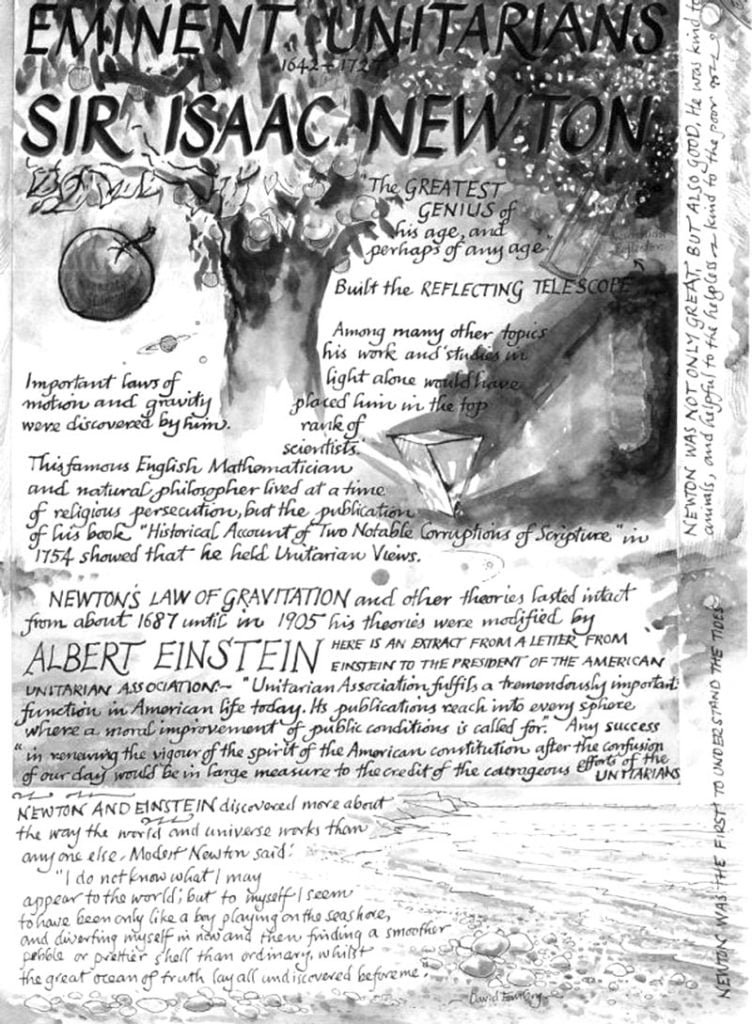 EMINENT UNITARIANS
1642 - 1727
SIR ISAAC NEWTON
"The GREATEST
GENIUS of
his age, and
perhaps of any age"
Built the REFLECTING TELESCOPE
Among many other topics
his work and studies in
light alone would have
placed him in the top
rank of
scientists.
Important laws of
motion and gravity
were discovered by him.
This famous English Mathematician
and natural philosopher lived at a time
of religious persecution, but the publication
of his book "Historical Account of Two Notable Corruptions of Scripture" in
1754 showed that he held Unitarian Views.
NEWTON'S LAW OF GRAVITATION and other theories lasted intact
from about 1687 until in 1905 his theories were modified by
ALBERT EINSTEIN HERE IS AN EXTRACT FROM A LETTER FROM
EINSTEIN TO THE PRESIDENT OF THE AMERICAN
UNITARIAN ASSOCIATION:- "Unitarian Association fulfils a tremendously important
function in American life today. Its publications reach into every sphere
where a moral improvement of public conditions is called for." Any success
"in renewing the vigour of the spirit of the American constitution after the confusion
of our day would be in large measure to the credit of the courageous efforts of the
UNITARIANS
NEWTON AND EINSTEIN discovered more about
the way the world and universe works than
any one else. Modest Newton said:
"I do not know what I may
appear to the world; but to myself I seem
to have been only like a boy playing on the seashore,
and diverting myself in now and then finding a smoother
pebble or prettier shell than ordinary, whilst
the great ocean of truth lay all undiscovered before me."
David
NEWTON WAS NOT ONLY GREAT, BUT ALSO GOOD, He was kind to
animals, and helpful to the helpless ~ kind to the poor
NEWTON WAS THE FIRST TO UNDERSTAND THE TIDES